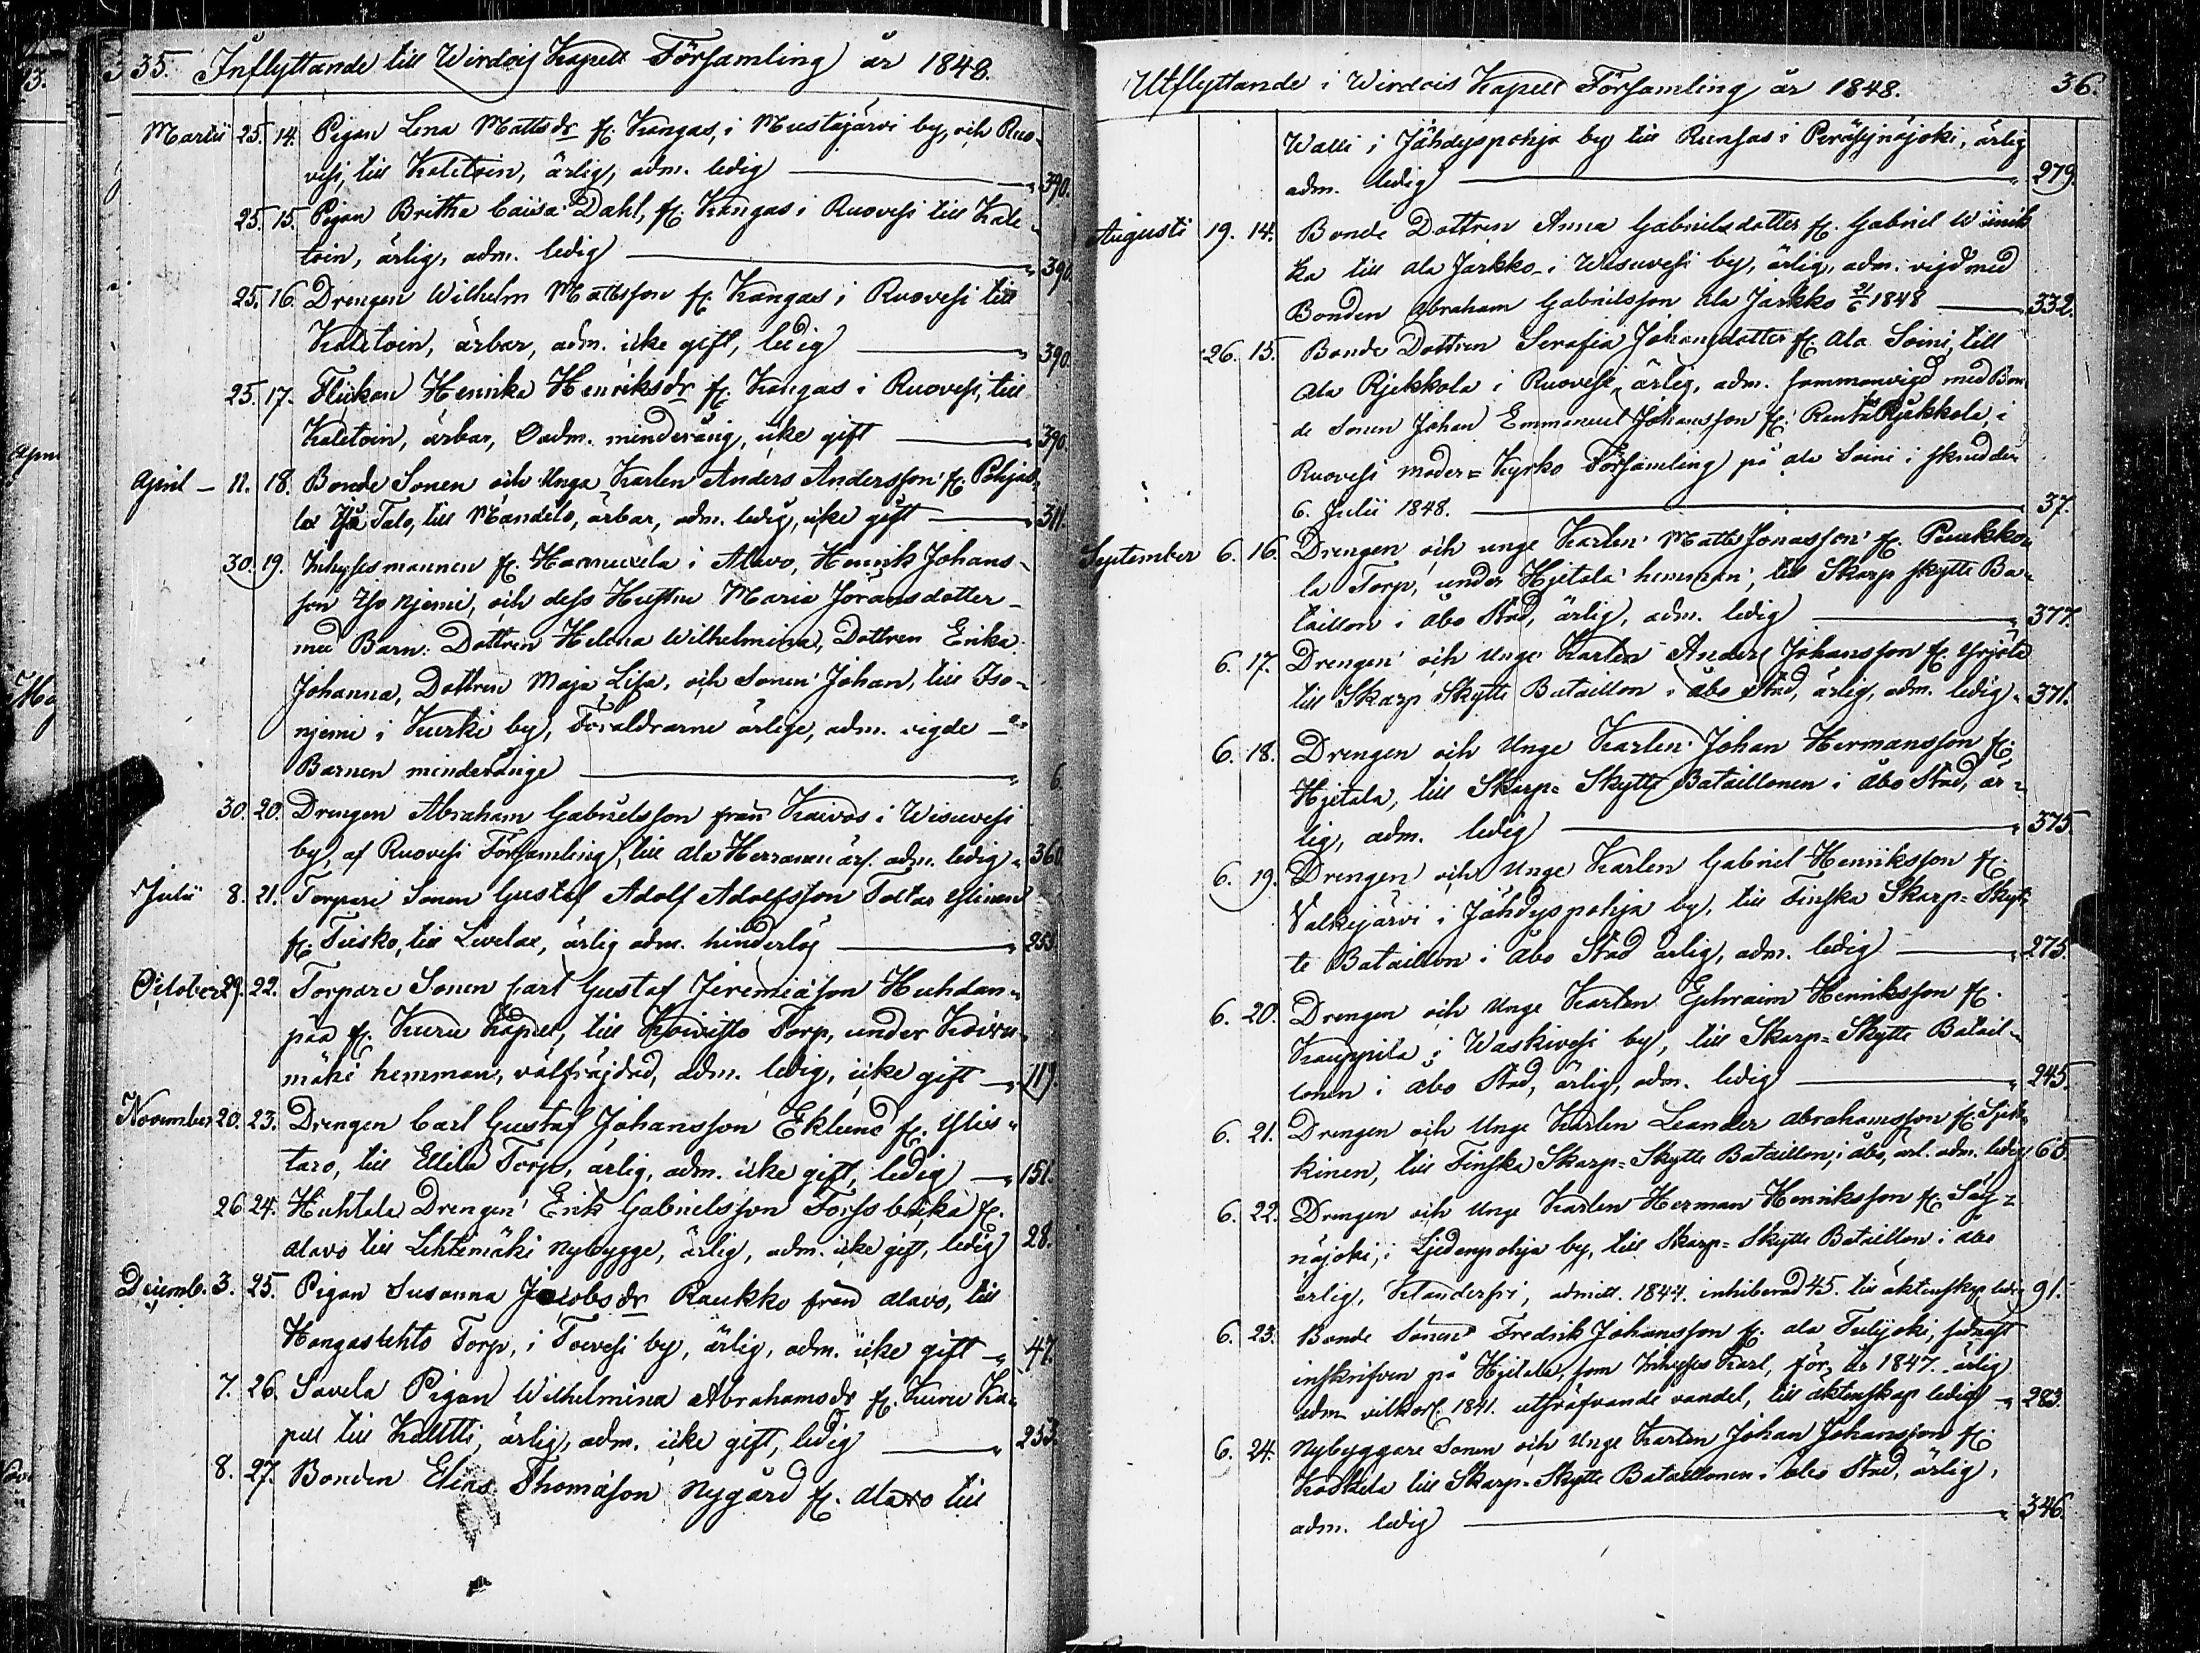 35. Inflyttande till Wirdois Kapell Församling år 1848.
Martii 25. 14. Pigan Lena Mattsdr fr. Kangas, i Mustajärvi by, och Ruo-
vesi, till Koletoin, ärlig, adm. ledig 390.
25. 15. Pigan Britha Caisa Dahl, fr. Kangas i Ruovesi till Kole-
toin, ärlig, adm. ledig 390.
25. 16. Drengen Wilhelm Mattsson fr. Kangas i Ruovesi till
Koletoin, ärbar, adm. icke gift, ledig 390.
25. 17. Flickan Henrika Henriksdr fr. Kangas i Ruovesi, till
Koletoin, ärbar, Oadm. minderårig, icke gift 390.
April 11. 18. Bonde Sonen och Unga Karlen Anders Andersson fr. Pohjas-
Talo, till Mandelo, ärbar, adm. ledig, icke gift 311.
30. 19. Inhysesmannen fr. i Alavo, Henrik Johans-
son Iso Njemi, och dess Hustru Maria Jöransdotter
med Barn: Dottren Helena Wilhelmina, Dottren Erika
Johanna, Dottren Maja Lisa, och Sonen Johan, till Iso-
njemi i Kurki by, Föräldrarne ärlige, adm. vigde
Barnen minderårige 6.
30. 20. Drengen Abraham Gabrielsson från Kaivos i Wisuvesi
by, af Ruovesi Församling, till Ala Herranen ärl. adm. ledig 360.
Julii 8. 21. Torpare Sonen Gustaf Adolf Adolfsson Toltas Ylinen
fr. Teisko, till Livelax, ärlig adm. hinderlös 253.
October 29. 22. Torpare Sonen Carl Gustaf Jeremiasson Huhdan-
pää fr. Kuru Kapell, till Koivisto Torp, under Koivu-
mäki hemman, välfräjdad, adm. ledig, icke gift 119.
November 20. 23. Drengen Carl Gustaf Johansson Eklund fr. Ylis-
taro, till Ellilä Torp, ärlig, adm. icke gift, ledig 151.
26 24. Huhtala Drengen Erik Gabrielsson Forssbacka fr.
Alavo till Lehtimäki Nybygge, ärlig, adm. icke gift, ledig 28.
Decemb. 3. 25. Pigan Susanna Jacobsdr Raukko från Alavo, till
Hongaslehto Torp, i Toivesi by, ärlig, adm. icke gift 47.
7. 26. Savela Pigan Wilhelmina Abrahamsdr fr. Kuru Ka-
pell till Kolttti, ärlig, adm. icke gift, ledig 253.
8. 27. Bonden Elias Thomasson Nygård fr. Alavo till
Utflyttande i Wirdois Kapell Församling år 1848. 36.
Walli i Jähdyspohja by till Runsas i Peräsejnäjoki, ärlig
adm. ledig 279.
Augusti 19. 14. Bonde Dottren Anna Gabrielsdotter fr. Gabriel Wiinik
ka till Ala Jarkko i Wisuvesi by, ärlig, adm. vigd med
Bonden Abraham Gabrielsson Ala Jarkko 21/6 1848 332.
26. 15. Bonde Dottren Serafia Johansdotter fr. Ala Soini, till
Ala Rjekkola i Ruovesi, ärlig, adm. sammanvigd med Bon
de Sonen Johan Emmanuel Johansson fr. Rjekkola, i
Ruovesi moder-Kyrko Församling på ala Soini
6. Julii 1848. 37.
September 6. 16. Drengen och unge Karlen Matts Jonasson fr. Peukko-
la Torp, under Hjetala hemman, till Skarp skytte Ba-
taillon i Åbo Stad, ärlig, adm. ledig 377.
6. 17. Drengen och Unge Karlen Anders Johansson fr. Yrjölä
till Skarp Skytte Bataillon i Åbo Stad, ärlig, adm. ledig 371.
6. 18. Drengen och Unge Karlen Johan Hermansson fr.
Hjetala, till Skarp-Skytte Bataillonen i Åbo Stad, är-
lig, adm. ledig 375.
6. 19. Drengen och Unge Karlen Gabriel Henriksson fr.
Valkejärvi i Jähdyspohja by, till Finska Skarp-Skyt-
te Bataillon i Åbo Stad ärlig, adm. ledig 275.
6. 20. Drengen och Unge Karlen Ephraim Henriksson fr.
Kauppila i Waskivesi by, till Skarp-Skytte Batail-
lonen i Åbo Stad, ärlig, adm. ledig 245.
6. 21. Drengen och Unge Karlen Leander Abrahamsson fr.
kinen, till Finska Skarp-Skytte Bataillon, i Åbo, ärl. adm. ledig 65.
6. 22. Drengen och Unge Karlen Herman Henriksson fr. Säy-
näjoki, i Ljedenpohja by, till Skarp-Skytte Bataillon i Åbo
ärlig, Klanderfri, admitt. 1844. inhiberad 45. till äktenskap ledig 91.
6. 23. Bonde Sonen Fredrik Johansson fr. Ala Tulijoki, sednast
inskrifven på Hjetala, som Inhyses Karl, för år 1847. ärlig
adm vilkorl. 1841. vandel, till äktenskap ledig 283.
6. 24. Nybyggare Sonen och Unge Karlen Johan Johansson fr.
Koskela till Skarp-Skytte Bataillonen i Åbo Stad, ärlig,
adm. ledig 346.